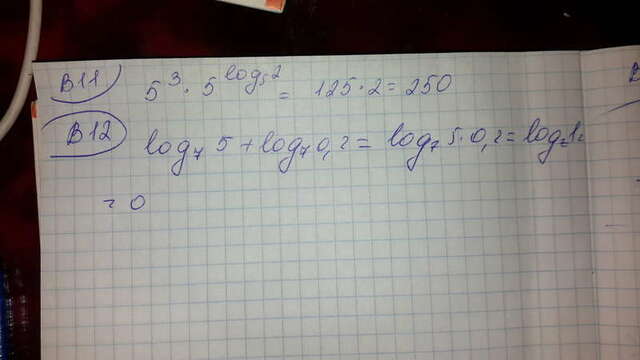 B11 5³ · 5^log₅2 = 125 · 2 = 250
B12 log₇ 5 + log₇ 0,2 = log₇ 5 · 0,2 = log₇ 1 =
= 0